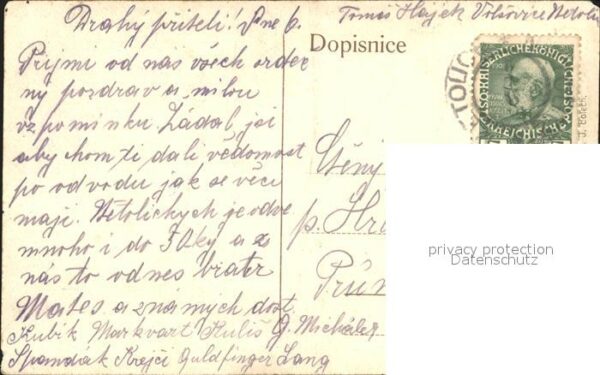 Drahý příteli! Dne 6.
Tomáš Hájek Netolic
Dopisnice
Přijmi od nás všech srdeč
ný pozdrav a milou
vzpomínku Žádal jsi
aby chom ti dali vědomost
po odvodu jak se věci
mají. Netolických je odve
mnoho i do Fčky a z
nás to odnes bratr
Mates a známých dost
Kubík Markvart Kuliš G. Michálek
Spandák Krejčí Guldfinger Lang
KAISERLICHE KÖNIGLICHE
ÖSTERREICHISCHE POST
Stěny
p. Hr
Prů
privacy protection
Datenschutz